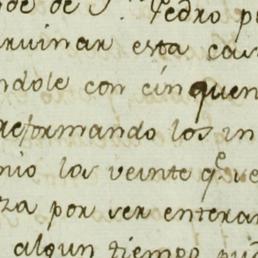 de de S.ⁿ Pedro p
rruinar esta cas
ndole con cinquen
reformando los in
nio los veinte q.ᵉ ve
za por ser entera
algun tiempo